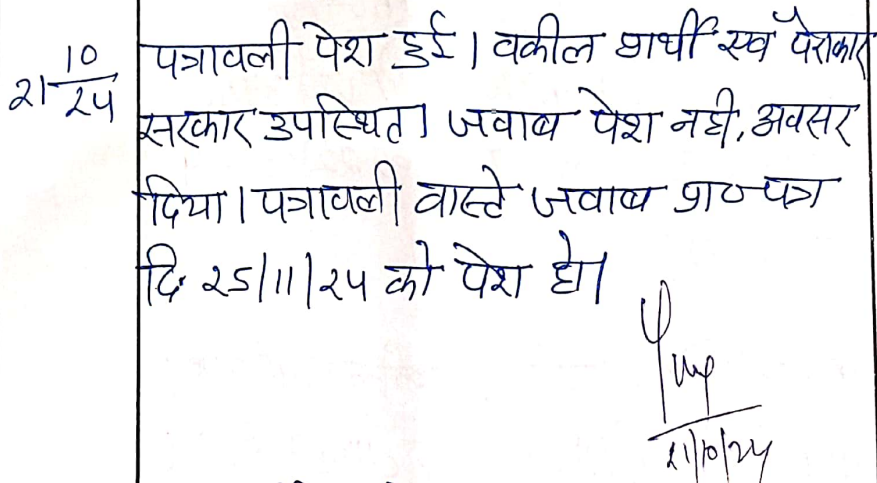 21 10/24 पत्रावली पेश हुई। वकील प्रार्थी एवं पेरोकार
सरकार उपस्थित। जवाब पेश नही, अवसर
दिया। पत्रावली वास्ते जवाब प्रा० पत्र
दि. 25/11/24 को पेश हो।
21/10/24